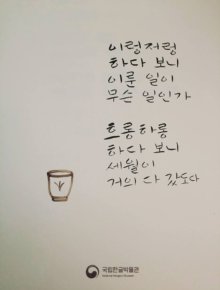 이렁저렁
하다 보니
이룬 일이
무슨 일인가
흐롱하롱
하다 보니
세월이
거의 다 갔도다
국립한글박물관